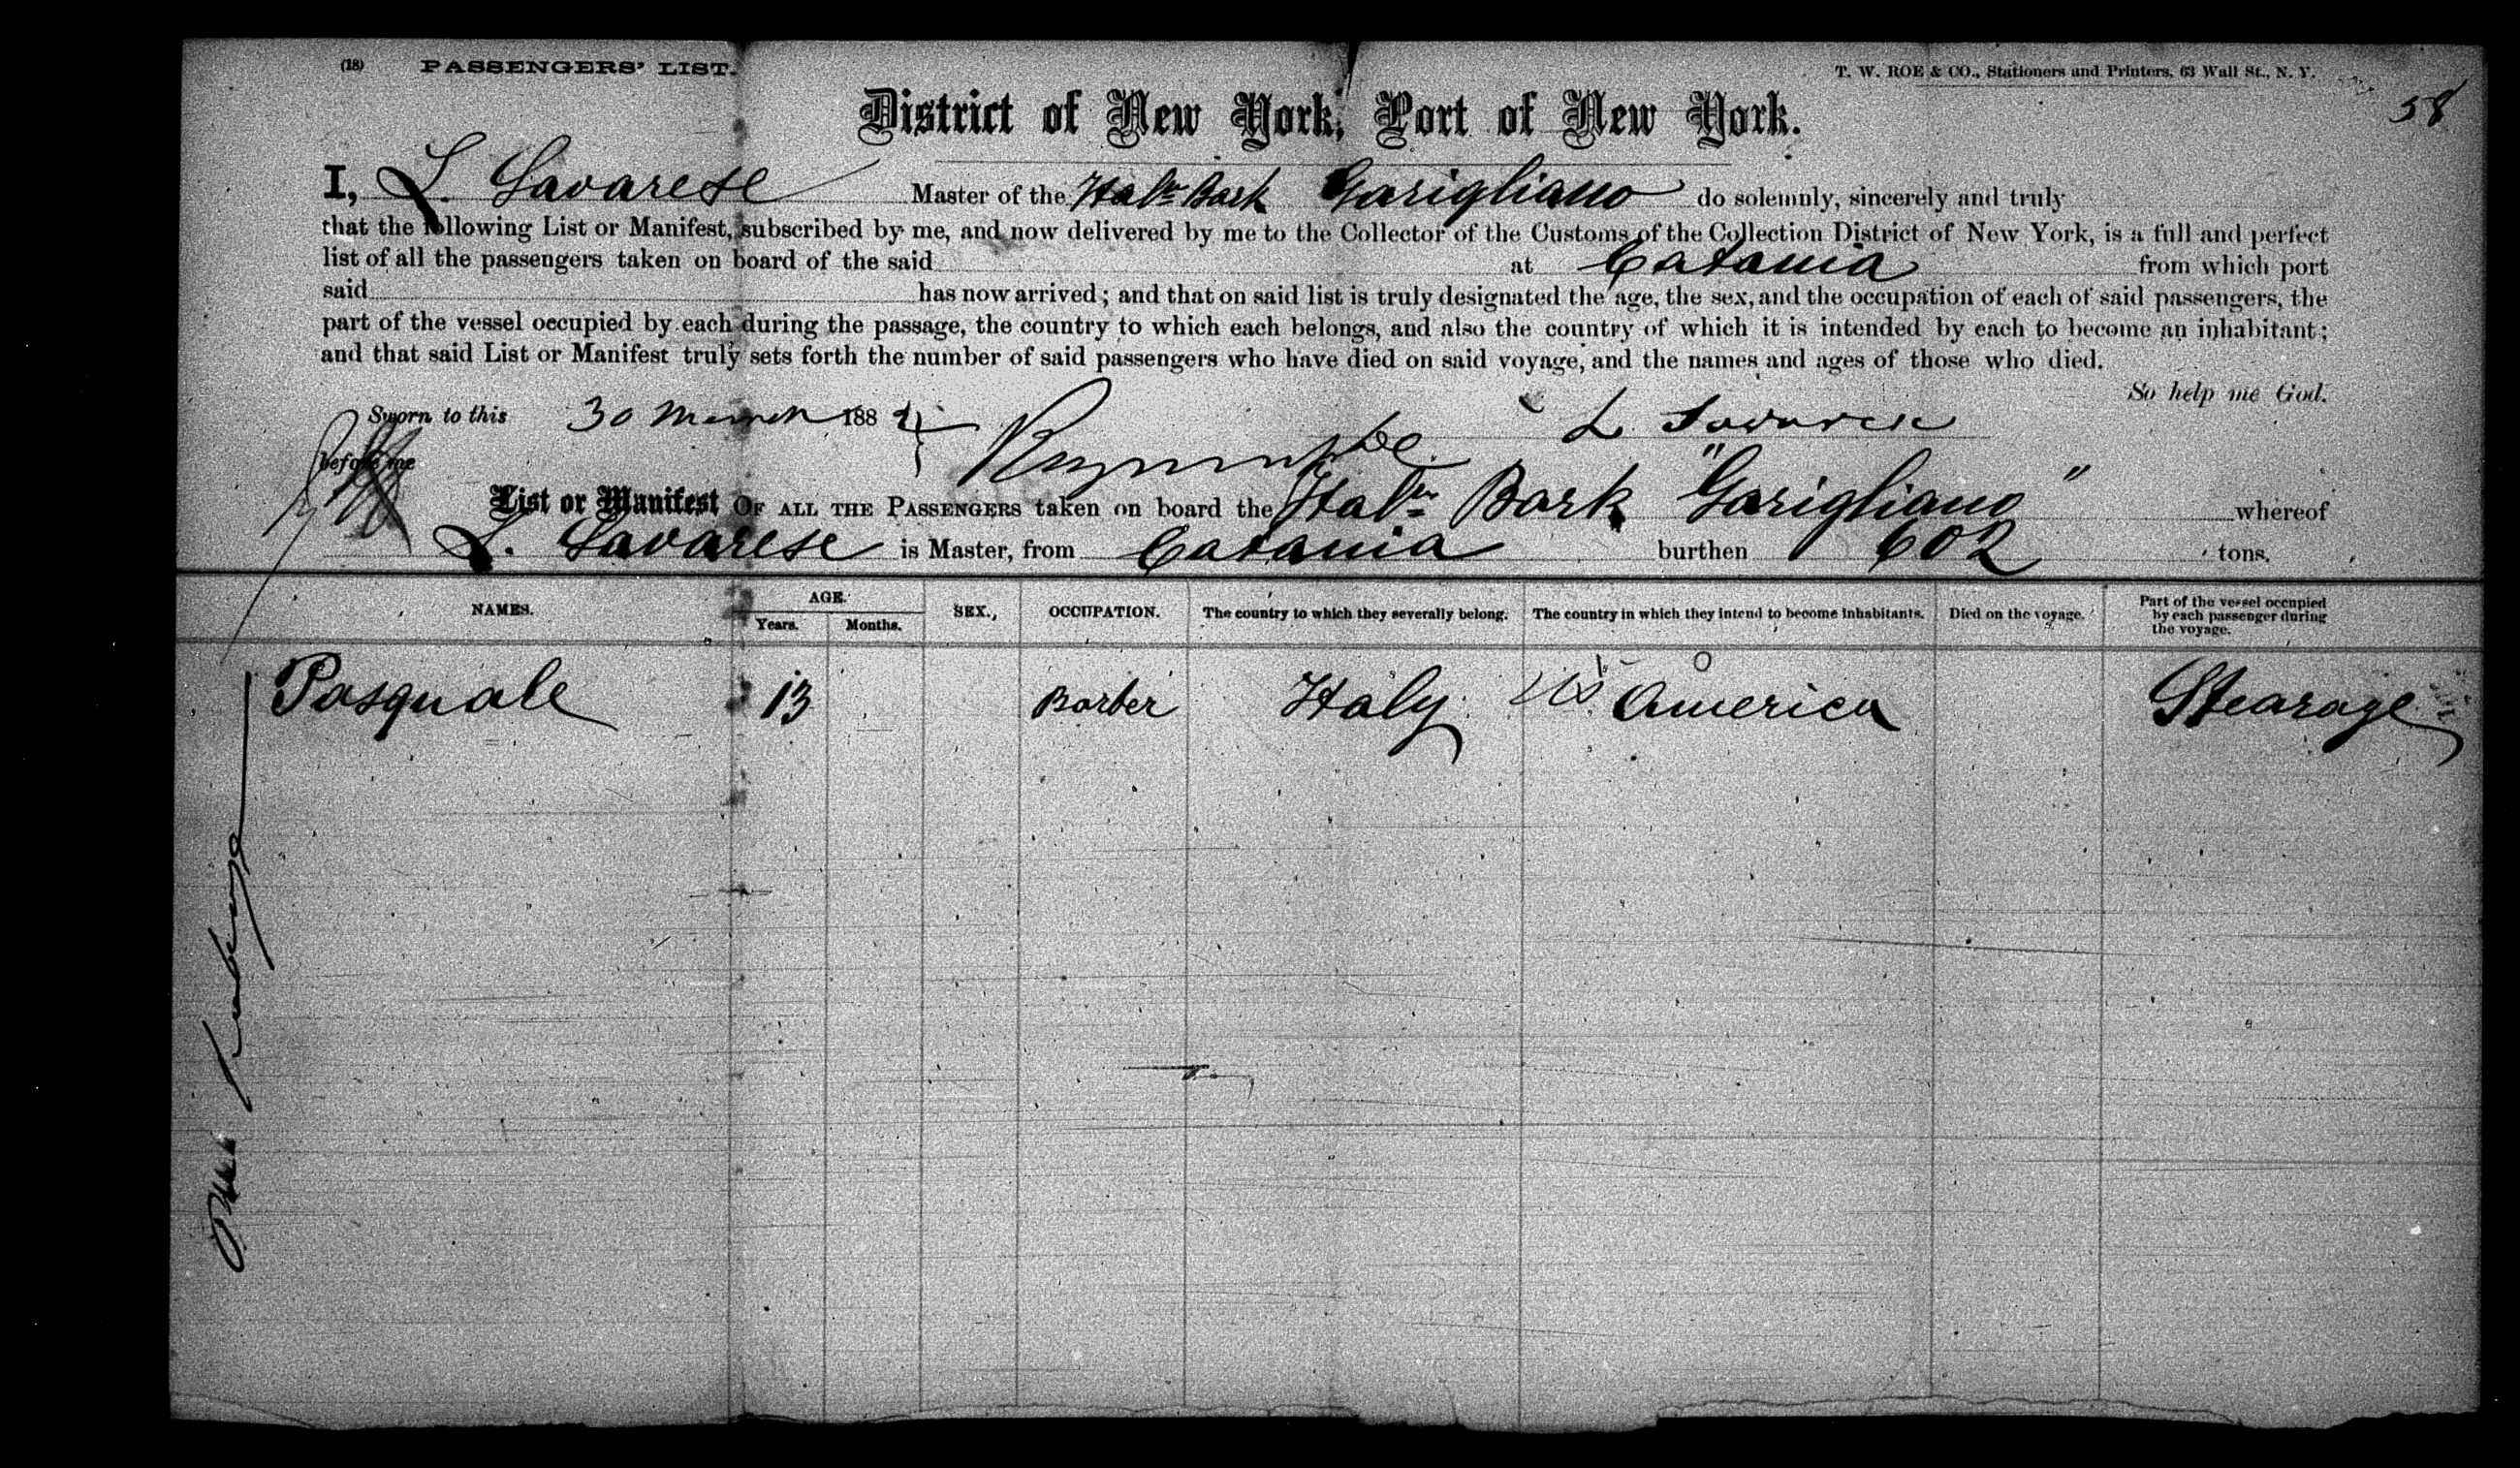 (18) PASSENGERS' LIST. T. W. ROE & CO., Stationers and Printers, 63 Wall St., N. Y.
58
District of New York, Port of New York.
I, L. Savarese Master of the Italn Bark Garigliano do solemnly, sincerely and truly
that the following List or Manifest, subscribed by me, and now delivered by me to the Collector of the Customs of the Collection District of New York, is a full and perfect
list of all the passengers taken on board of the said at Catania from which port
said has now arrived; and that on said list is truly designated the age, the sex, and the occupation of each of said passengers, the
part of the vessel occupied by each during the passage, the country to which each belongs, and also the country of which it is intended by each to become an inhabitant;
and that said List or Manifest truly sets forth the number of said passengers who have died on said voyage, and the names and ages of those who died.
So help me God.
Sworn to this 30 March 188 L. Savarese
before me
List or Manifest OF ALL THE PASSENGERS taken on board the Italn Bark "Garigliano" whereof
L. Savarese is Master, from Catania burthen 602 tons.
NAMES. AGE. Years. Months. SEX., OCCUPATION. The country to which they severally belong. The country in which they intend to become inhabitants. Died on the voyage. Part of the vessel occupied by each passenger during the voyage.
Pasquale 13 Barber Italy US America Stearage